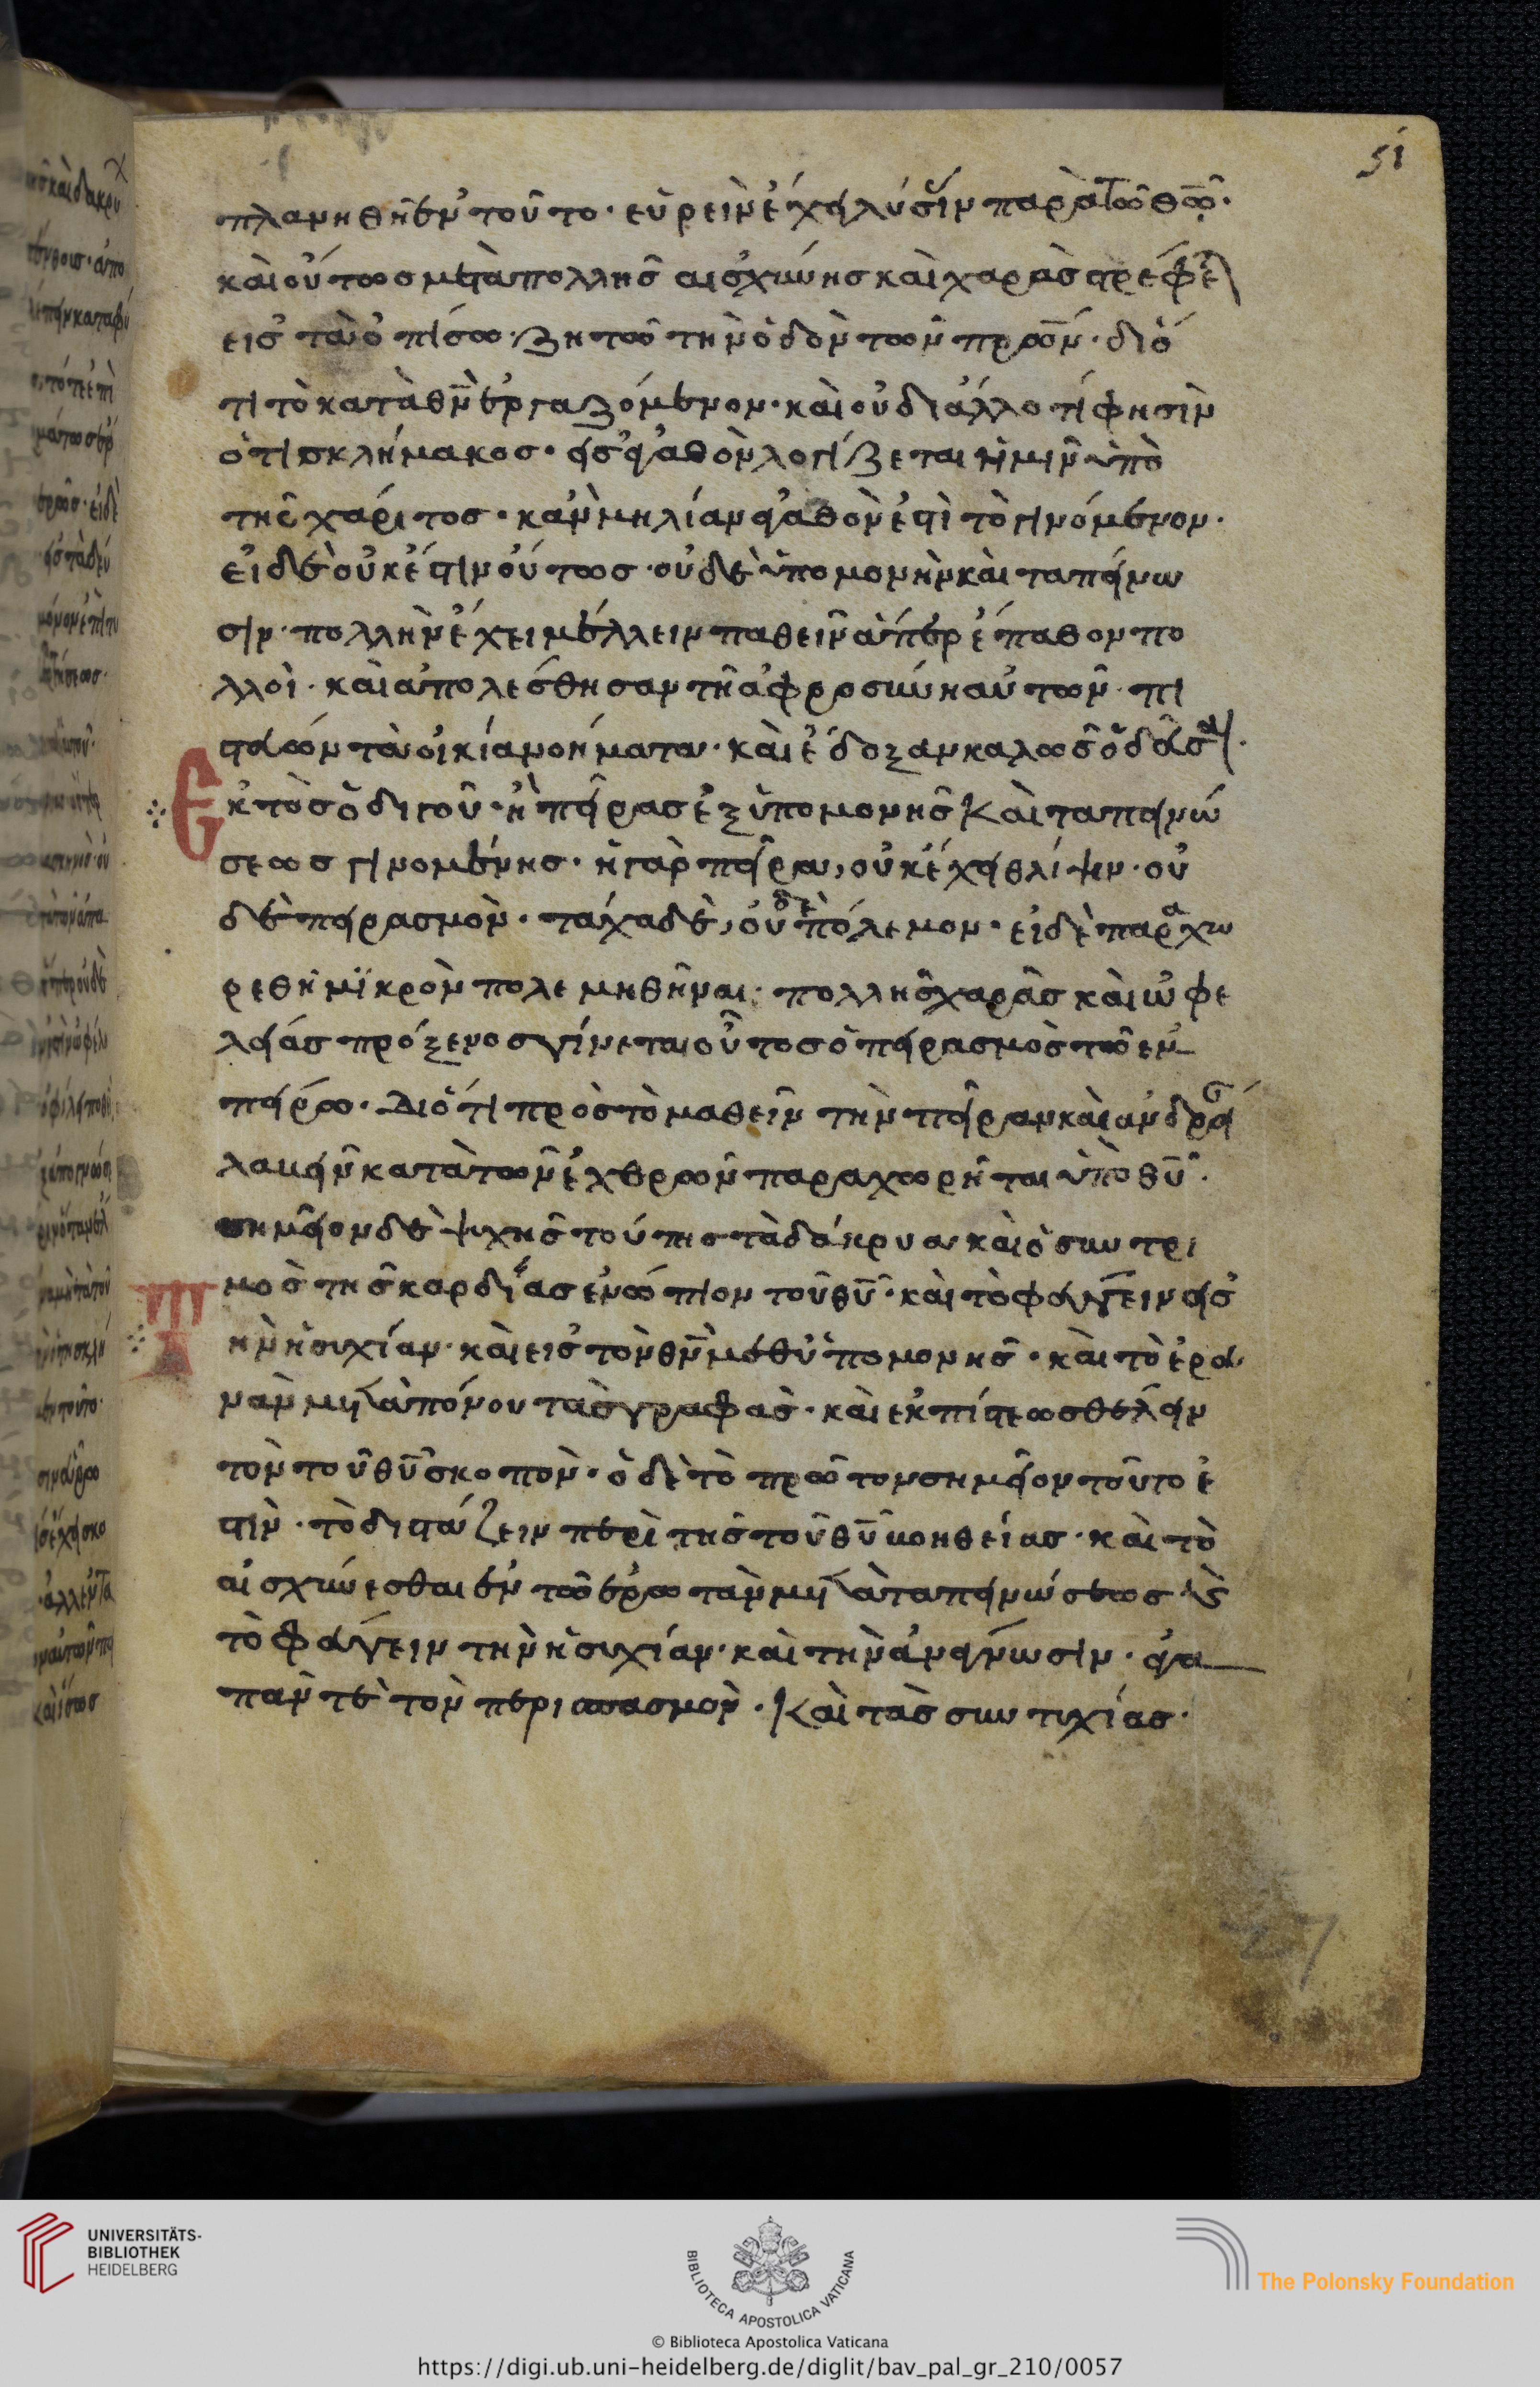 51
πλανηθῆ ἐν τούτο· εὑρεῖν ἔχει λύσιν παρὰ τῶ θῶ·
καὶ οὕτως μετὰ πολλῆς αἰσχύνης καὶ χαρᾶς στρέφε
εἰς τὰ ὀπίσω· ζητῶ τὴν ὁδὸν τῶν πρων· διό
τι τὸ κατὰ θν ἐργαζόμενον· καὶ οὐ δι' ἄλλό τι φησὶν
ὁ τῆς κλήμακος· εἰς ἀγαθὸν λογίζεται ἡμῖν ὑπὸ
τῆς χάριτος· κἂν μὴ λίαν ἀγαθὸν ἐστὶ τὸ γινόμενον·
εἰ δὲ οὐκ ἔστιν οὕτως· οὐδὲ ὑπομονὴν καὶ ταπείνω
σιν· πολλὴν ἔχει μέλλειν παθεῖν ἅπερ ἔπαθον πο
λλοὶ· καὶ ἀπολέσθησαν τῆ ἀφροσύνη αὐτῶν· πι
στῶν τὰ οἰκία νοήματα· καὶ ἔδοξαν καλῶς ὁδεῦσαι·
Ἐκτὸς ὁδηγοῦ· ἢ πείρας ἐξ ὑπομονῆς καὶ ταπεινώ
σεως γινομένης· ἡ γὰρ πεῖρα, οὐκ ἔχει θλίψιν· οὐ
δὲ πειρασμὸν· τάχα δὲ, οὐδὲ πόλεμον· εἰ δὲ παραχω
ρεθῆ μϊκρὸν πολεμηθῆναι· πολλῆς χαρᾶς καὶ ὠφε
λείας πρόξενος γίνεται οὗτος ὁ πειρασμὸς τῶ ἐμ
πείρω· Διότι πρὸς τὸ μαθεῖν τὴν πεῖραν καὶ ἀνδρεί
αν κατὰ τῶν ἐχθρῶν παραχωρῆται ὑπὸ θυ·
σημεῖον δὲ ψυχῆς τούτης τὰ δάκρυα καὶ ὁ συντρι
μὸς τῆς καρδίας ἐνώπιον τοῦ θυ· καὶ τὸ φεύγειν εἰς
τὴν ἡσυχίαν· καὶ εἰς τὸν θν μεθ' ὑπομονῆς· καὶ τὸ ἐρευ
νᾶν μετὰ πόνου τὰς γραφὰς· καὶ ἐκ πίστεως θέλειν
τὸν τοῦ θυ σκοπὸν· ὁ δὲ τὸ πρῶτον σημεῖον τοῦτο ἐ
στὶν· τὸ διστάζειν περὶ τῆς τοῦ θυ βοηθείας· καὶ τὸ
αἰσχύνεσθαι ἐν τῶ ἐρωτᾶν μετὰ ταπεινώσεως· καὶ
τὸ φεύγειν τὴν ἡσυχίαν· καὶ τὴν ἀνάγνωσιν· ἀγα
πᾶν τὲ τὸν περισπασμὸν· Καὶ τὰς συντυχίας·
27
UNIVERSITÄTS-
BIBLIOTHEK
HEIDELBERG
BIBLIOTECA APOSTOLICA VATICANA
The Polonsky Foundation
© Biblioteca Apostolica Vaticana
https://digi.ub.uni-heidelberg.de/diglit/bav_pal_gr_210/0057